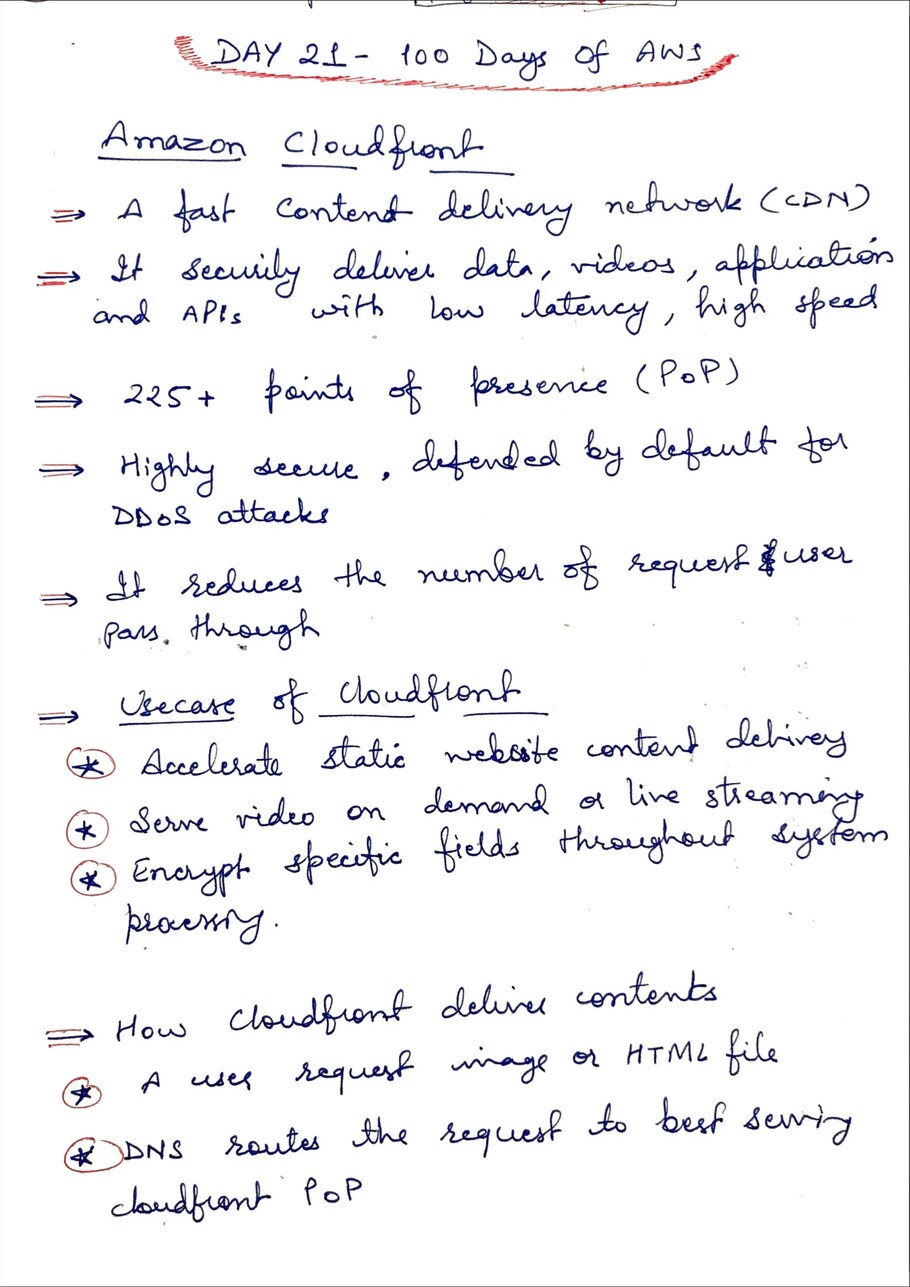 DAY 21 - 100 Days of AWS
Amazon Cloudfront
⇒ A fast content delivery network (CDN)
⇒ It securily deliver data, videos, application
and APIs with low latency, high speed
⇒ 225+ points of presence (PoP)
⇒ Highly secure, defended by default for
DDoS attacks
⇒ It reduces the number of request user
pass through
⇒ Usecase of Cloudfront
* Accelerate static website content delivery
* Serve video on demand or live streaming
* Encrypt specific fields throughout system
processing.
⇒ How Cloudfront deliver contents
* A user request image or HTML file
* DNS routes the request to best serving
cloudfront PoP